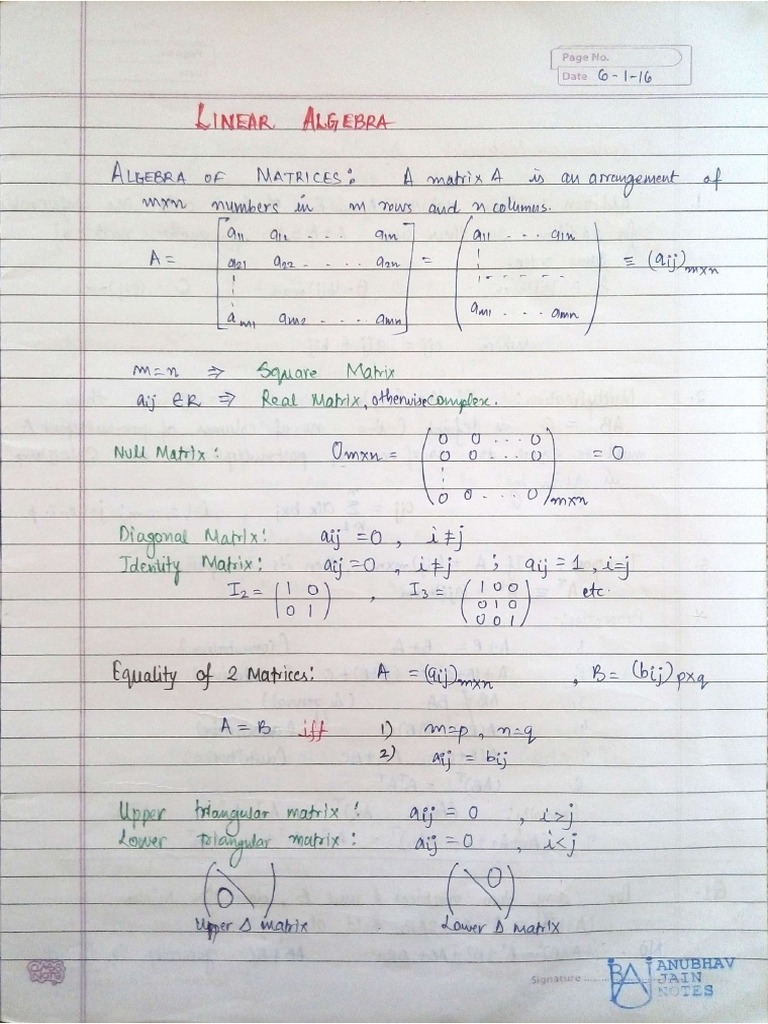 Page No.
Date 6-1-16
LINEAR ALGEBRA
ALGEBRA OF MATRICES: A matrix A is an arrangement of
m×n numbers in m rows and n columns.
A = [a11 a12 . . . . a1n] = (a11 . . . a1n) ≡ (aij)m×n
a21 a22 . . . . a2n
am1 am2 . . . . amn am1 . . . amn
m=n ⇒ Square Matrix
aij ∈R ⇒ Real Matrix, otherwise complex.
Null Matrix: Om×n = (0 0 . . . 0
0 0 . . . 0
0 0 . . . 0)m×n = 0
Diagonal Matrix: aij = 0 , i ≠ j
Identity Matrix: aij = 0 , i ≠ j ; aij = 1 , i=j
I2 = (1 0 , I3 = (1 0 0 etc.
0 1) 0 1 0
0 0 1)
Equality of 2 Matrices: A = (aij)m×n , B = (bij)p×q
A = B iff 1) m=p , n=q
2) aij = bij
Upper triangular matrix: aij = 0 , i>j
Lower triangular matrix: aij = 0 , i<j
(0\) (\0)
Upper Δ matrix Lower Δ matrix
Signature
BAJ ANUBHAV
JAIN
NOTES